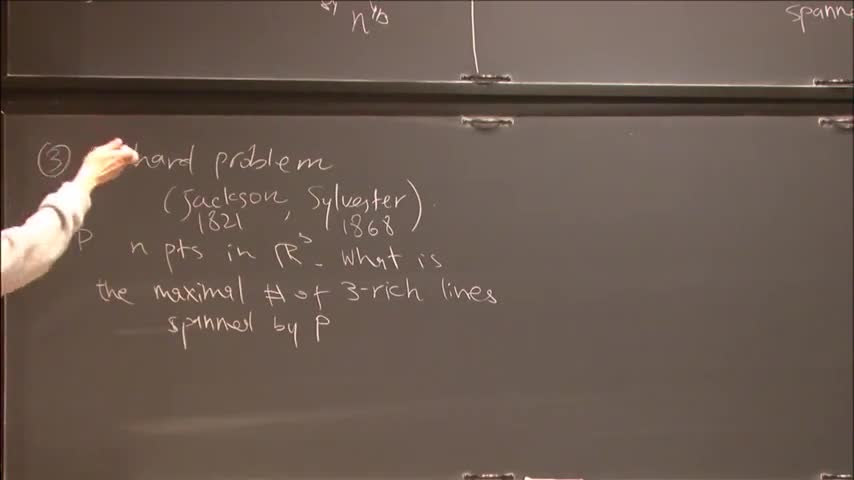 spanne
③ hard problem
(Jackson, Sylvester).
1821 1868
P n pts in ℝ³. What is
the maximal # of 3-rich lines
spanned by P